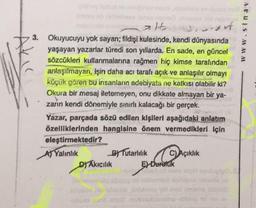 3. Okuyucuyu yok sayan; fildişi kulesinde, kendi dünyasında
yaşayan yazarlar türedi son yıllarda. En sade, en güncel
sözcükleri kullanmalarına rağmen hiç kimse tarafından
anlaşılmayan, işin daha acı tarafı açık ve anlaşılır olmayı
küçük gören bu insanların edebiyata ne katkısı olabilir ki?
Okura bir mesaj iletemeyen, onu dikkate almayan bir ya-
zarın kendi dönemiyle sınırlı kalacağı bir gerçek.
Yazar, parçada sözü edilen kişileri aşağıdaki anlatım
özelliklerinden hangisine önem vermedikleri için
eleştirmektedir?
A) Yalınlık B) Tutarlılık C) Açıklık
D) Akıcılık E) Duruluk
www.sınav